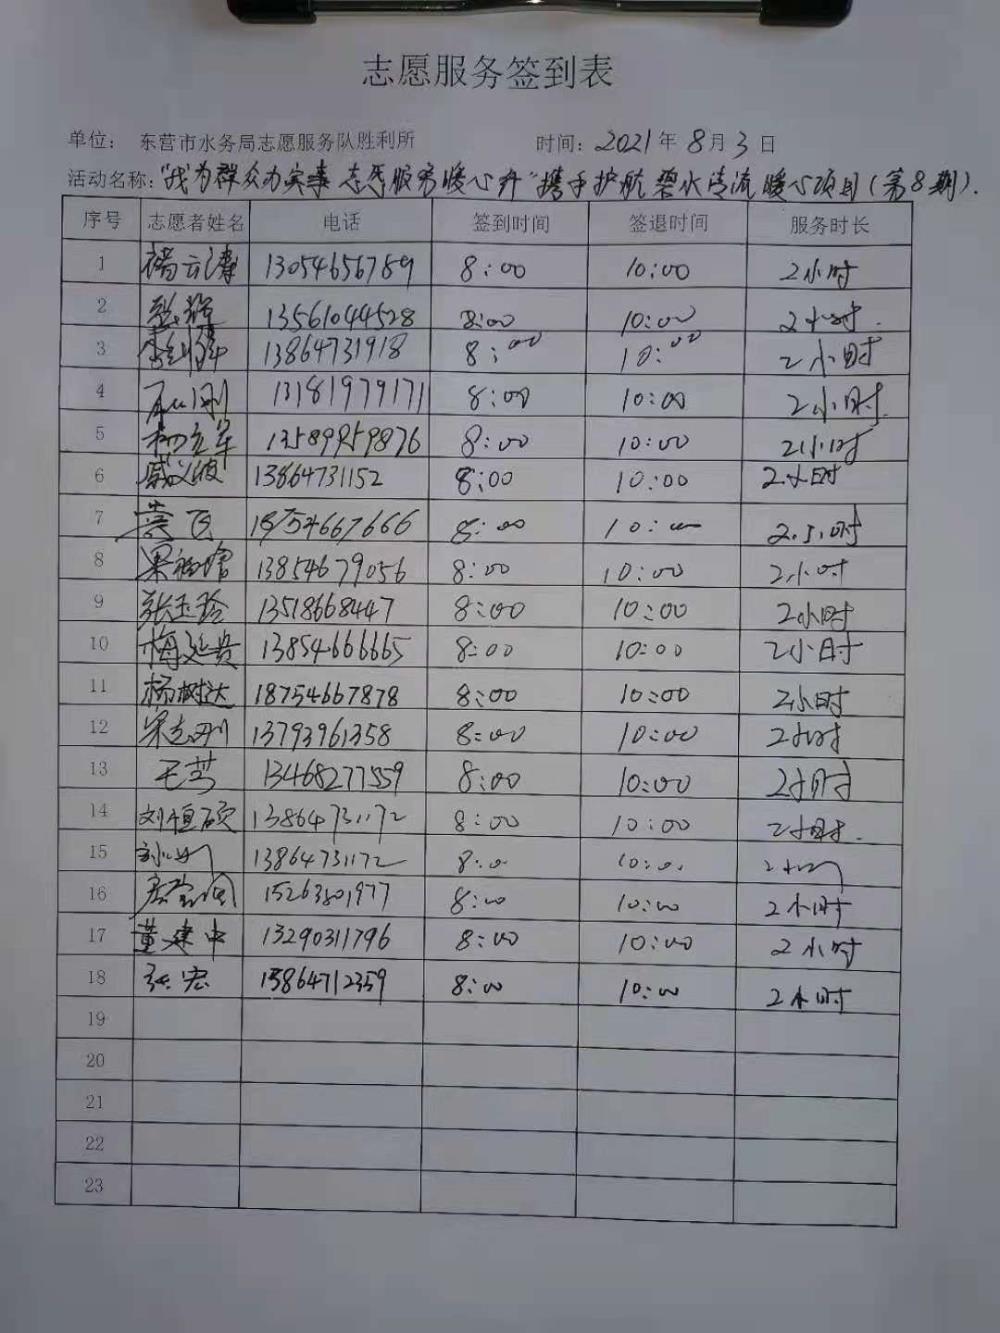 志愿服务签到表
单位: 东营市水务局志愿服务队胜利所 时间: 2021年8月3日
活动名称:"我为群众办实事 志愿服务暖心行"携手护航 碧水清流 暖心项目(第8期).
序号 志愿者姓名 电话 签到时间 签退时间 服务时长
1 13054656789 8:00 10:00 2小时
2 13561044528 8:00 10:00 2小时.
3 13864731918 8:00 10:00 2小时
4 13181979171 8:00 10:00 2小时
5 13589959876 8:00 10:00 2小时
6 13864731152 8:00 10:00 2小时
7 18754667666 8:00 10:00 2小时
8 13854679056 8:00 10:00 2小时
9 张玉玲 13518668447 8:00 10:00 2小时
10 梅延贵 13854666665 8:00 10:00 2小时
11 杨树达 18754667878 8:00 10:00 2小时
12 宋志刚 13793961358 8:00 10:00 2小时
13 13468277559 8:00 10:00 2小时
14 刘恒硕 13864731172 8:00 10:00 2小时.
15 13864731172 8:00 10:00 2小时
16 15263801977 8:00 10:00 2小时
17 董建中 13290311796 8:00 10:00 2小时
18 张宏 15864712359 8:00 10:00 2小时
19
20
21
22
23